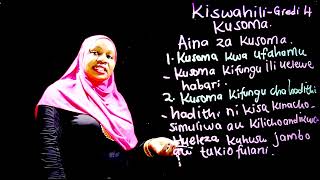 Kiswahili-Gredi 4
Kusoma.
Aina za kusoma.
1. Kusoma kwa ufahamu
- Kusoma kifungu ili uelewe
habari.
2. Kusoma kifungu cha hadithi
- hadithi ni kisa kinacho-
simuliwa au kilichoandikwa
kueleza kuhusu jambo
au tukio fulani.